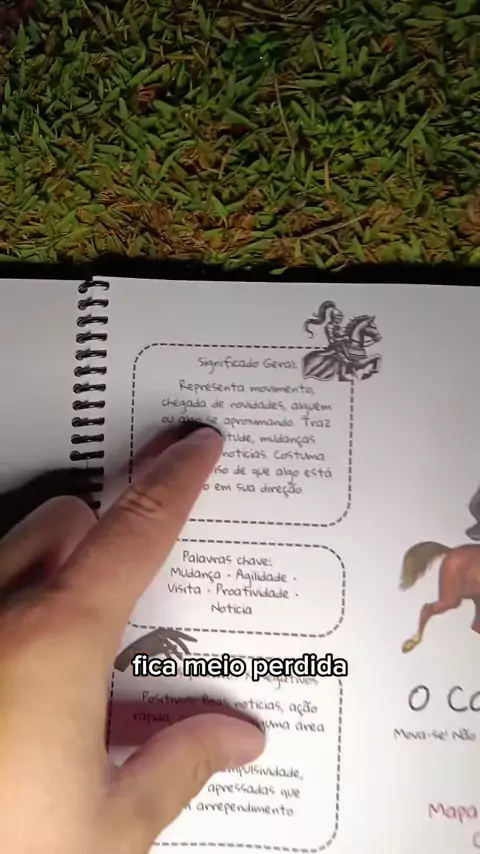 Significado Geral:
Representa movimento,
chegada de novidades, alguém
ou algo se aproximando. Traz
mudanças
notícias. Costuma
de que algo está
em sua direção.
Palavras chave:
Mudança • Agilidade •
Visita • Proatividade •
Notícia
fica meio perdida
Positivos: Boas notícias, ação
rápida, alguma área
impulsividade,
apressadas que
arrependimento.
O
Mova-se! Não
Mapa